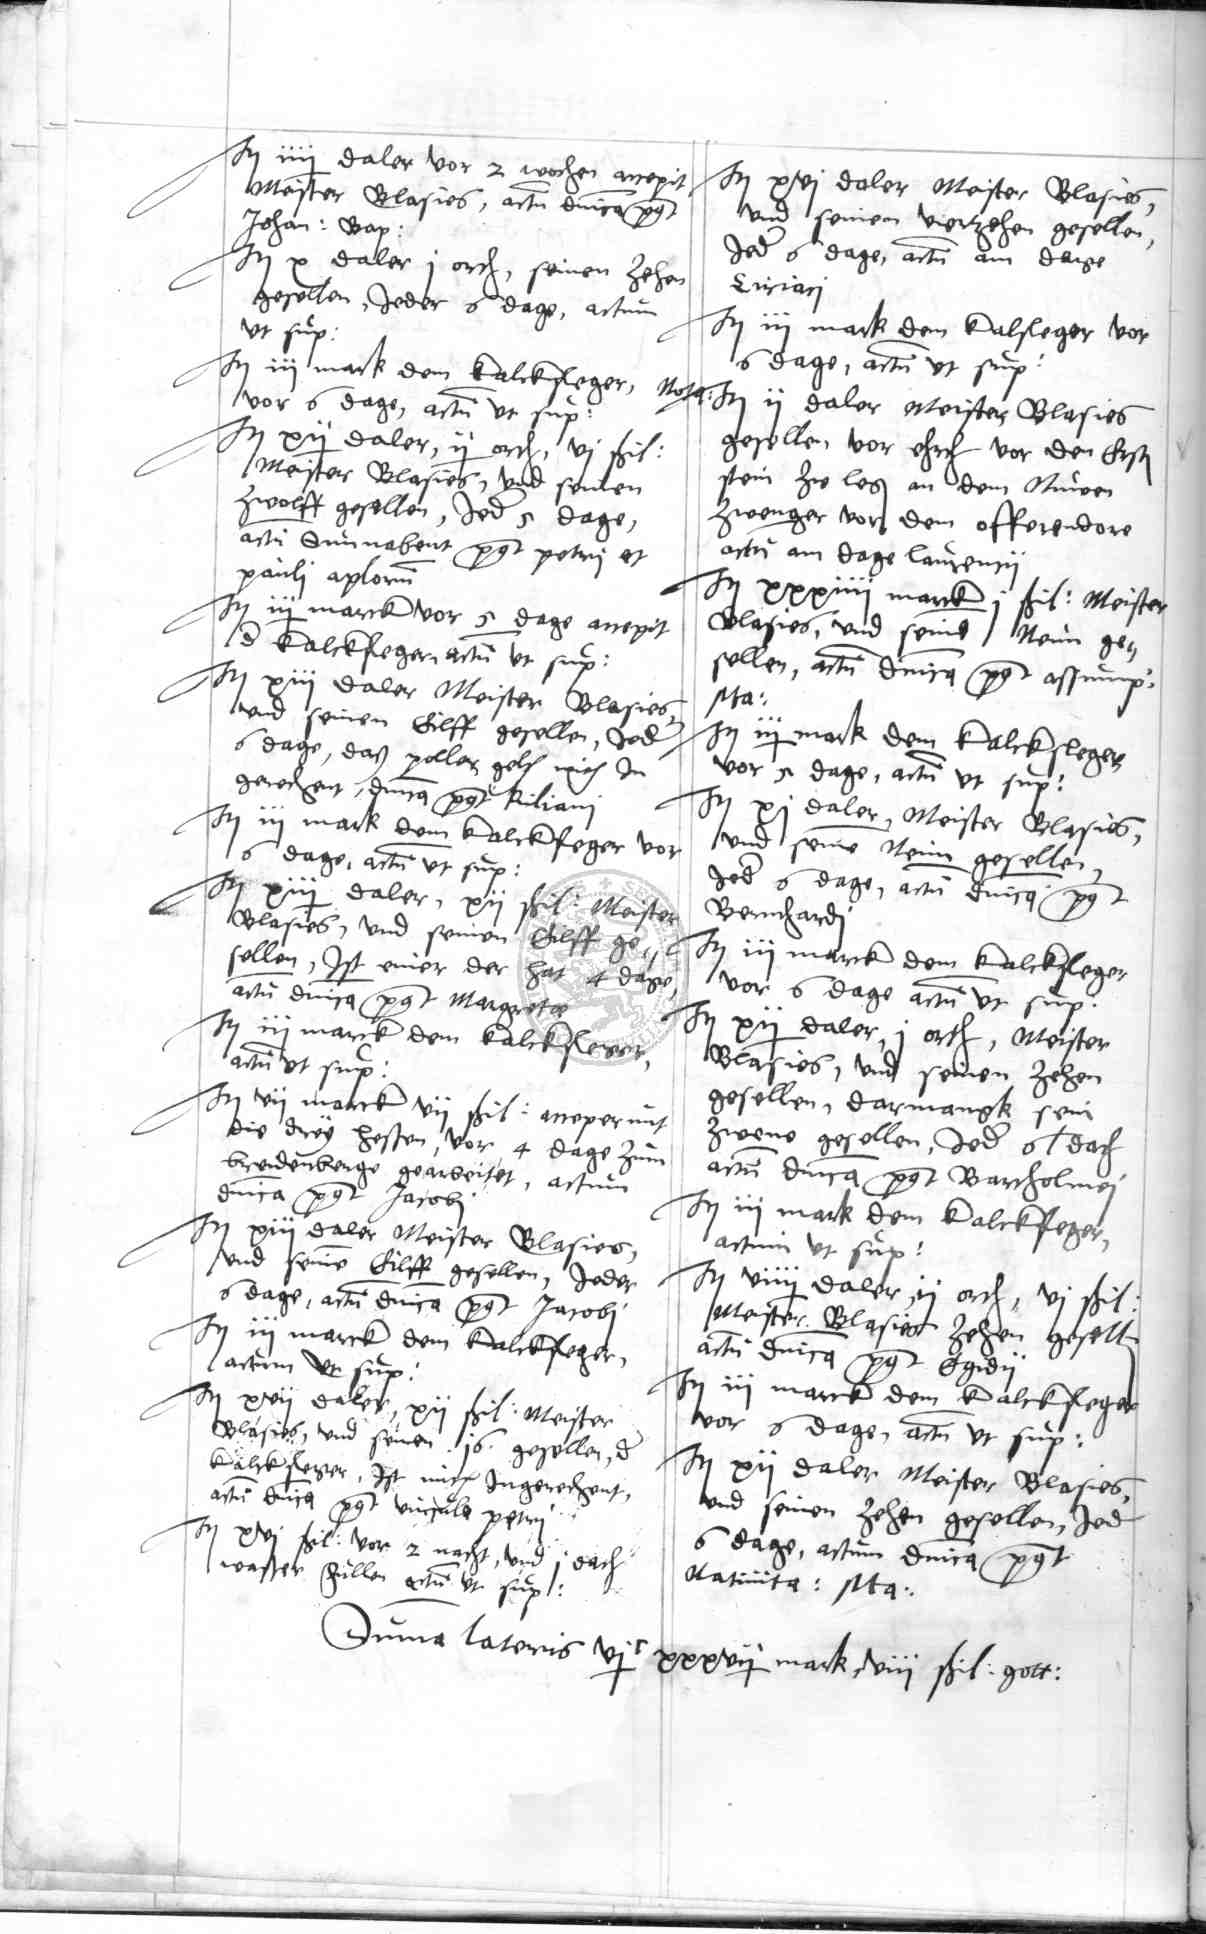 It iiij daler vor 2 wochen accepit
Meister Blasies, actu dnica pqt
Johan: Bap:
It x daler j orth, seinen Zehen
gesellen, Jeder 6 dage, actum
vt sup:
It iij mark dem kalckfleger,
vor 6 dage, actu vt sup:
It xij daler, ij orth, vj skil:
Meister Blasies, vnd seinen
Zwolff gesellen, Jed 5 dage,
actu Sunnabent pqt petrij et
paulj aplorum
It iij marck vor 5 dage accepit
d kalckfleger actu vt sup:
It xiij daler Meister Blasies,
vnd seinen Eilff gesellen, Jed
6 dage, das poller gelt mith In
gerechent, dnica pqt kilianj
It iij mark dem kalckfleger vor
6 dage, actu vt sup:
It xiij daler, xij skil: Meister
Blasies, vnd seinen Eilff ge
sellen, Ist einer der hat 4 dage,
actu dnica pqt Margrete
It iij marck dem kalckfleger,
actu vt sup:
It vij marck vij skil: acceperunt
die drey hesten, vor 4 dage Zum
bredenberge gearbeitet, actum
dnica pqt Jacobj
It xiij daler Meister Blasies,
vnd seine Eilff gesellen, Jeder
6 dage, actu dnica pqt Jacobj
It iij marck dem kalckfleger,
actum vt sup:
It xvij daler, xij skil: Meister
Blasies, vnd seinen 16 gesellen, d
kalckfleger, Ist mith Ingerechent,
actu dnica pqt vincula petrij
It xvj skil: vor 2 nacht, vnd j dach
wasser füllen actu vt sup:
It xvj daler Meister Blasies,
vnd seinen viertzehen gesellen,
Jed 6 dage, actu am dage
Ciriacj
It iij mark dem kalfleger vor
6 dage, actu vt sup:
Nota: It ij daler Meister Blasies
gesellen vor vor den Ersten
stein Zw legen an dem Nuwen
Zwenger vor dem offerendore
actu am dage laurencij
It xxxiiij marck j skil: Meister
Blasies, vnd seine Neun ge
sellen, actu dnica pqt assump:
Ma:
It iij mark dem kalckfleger
vor 5 dage, actu vt sup:
It xj daler, Meister Blasies,
vnd seine Neun gesellen,
Jed 6 dage, actu dnica pqt
Bernhardj
It iij marck dem kalckfleger
vor 6 dage actu vt sup:
It xij daler, j orth, Meister
Blasies, vnd seinen Zehen
gesellen, darmangk sein
Zwene gesellen, Jed 6 dach
actu dnica pqt Bartholmej
It iij mark dem kalckfleger,
actum vt sup:
It viiij daler, ij orth, vj skil:
Meister Blasies Zehen gesellen
actu dnica pqt Egidij
It iij marck dem kalckfleger
vor 6 dage, actu vt sup:
It xij daler Meister Blasies,
vnd seinen Zehen gesellen, Jed
6 dage, actum dnica pqt
Natiuita: Ma:
Suma lateris vjc xxxvij mark, viij skil: gott: